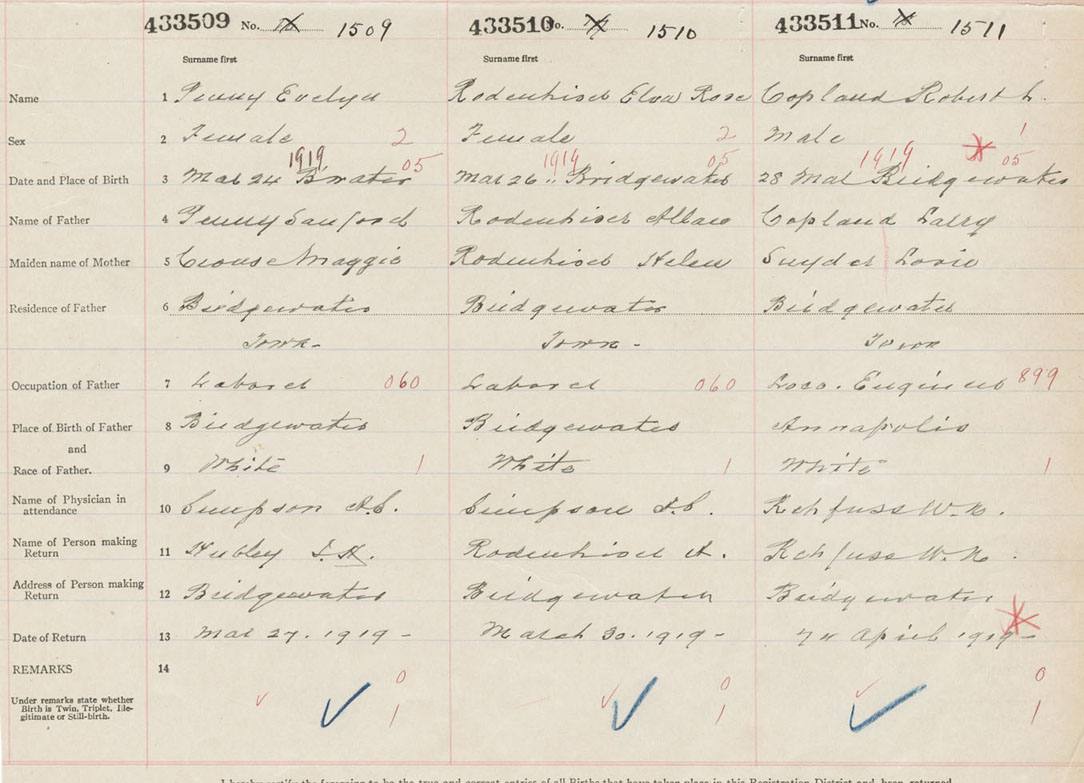 433509 No. 1509 433510 No. 1510 433511 No. 1511
Surname first Surname first Surname first
Name 1 Penny Evelyn Rodenhiser Elva Rose Copland Robert L.
Sex 2 Female 2 Female 2 Male 1
1919 05 1919 05 1919 05
Date and Place of Birth 3 Mar 24 B'water Mar 26 " Bridgewater 28 Mar Bridgewater
Name of Father 4 Penny Sanford Rodenhiser Allan Copland Larry
Maiden name of Mother 5 Crouse Maggie Rodenhiser Helen Snyder
Residence of Father 6 Bridgewater Bridgewater Bridgewater
Town - Town - Town
Occupation of Father 7 Laborer 060 Laborer 060 Loco. Engineer 899
Place of Birth of Father 8 Bridgewater Bridgewater Annapolis
and
Race of Father. 9 White 1 White 1 White 1
Name of Physician in
attendance 10 Simpson Simpson Rehfuss W.N.
Name of Person making
Return 11 Hubley Rodenhiser A. Rehfuss W.N.
Address of Person making
Return 12 Bridgewater Bridgewater Bridgewater
Date of Return 13 Mar 27. 1919 - March 30. 1919 - 7th April 1919 -
REMARKS 14
0 0 0
Under remarks state whether
Birth is Twin, Triplet, Ille-
gitimate or Still-birth. 1 1 1
I hereby certify the foregoing to be the true and correct entries of all Births that have taken place in this Registration District and been returned